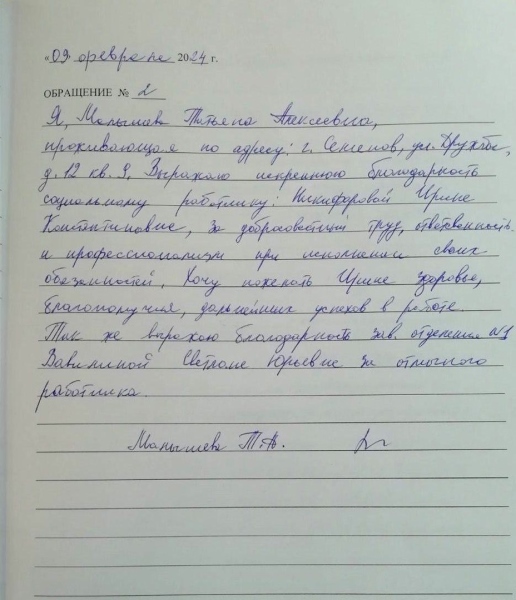 «09» февраля 2024 г.
ОБРАЩЕНИЕ № 2
Я, Малышева Татьяна Алексеевна,
проживающая по адресу: г. Сенгелей, ул. Дружбы,
д. 12 кв. 9, Выражаю искреннюю благодарность
социальному работнику: Никифоровой Ирине
Константиновне, за добросовестный труд, ответственность
и профессионализм при исполнении своих
обязанностей, Хочу пожелать Ирине здоровья,
благополучия, дальнейших успехов в работе.
Так же выражаю благодарность зав. отделения №1
Вавилиной Светлане Юрьевне за отличного
работника.
Малышева Т.А.